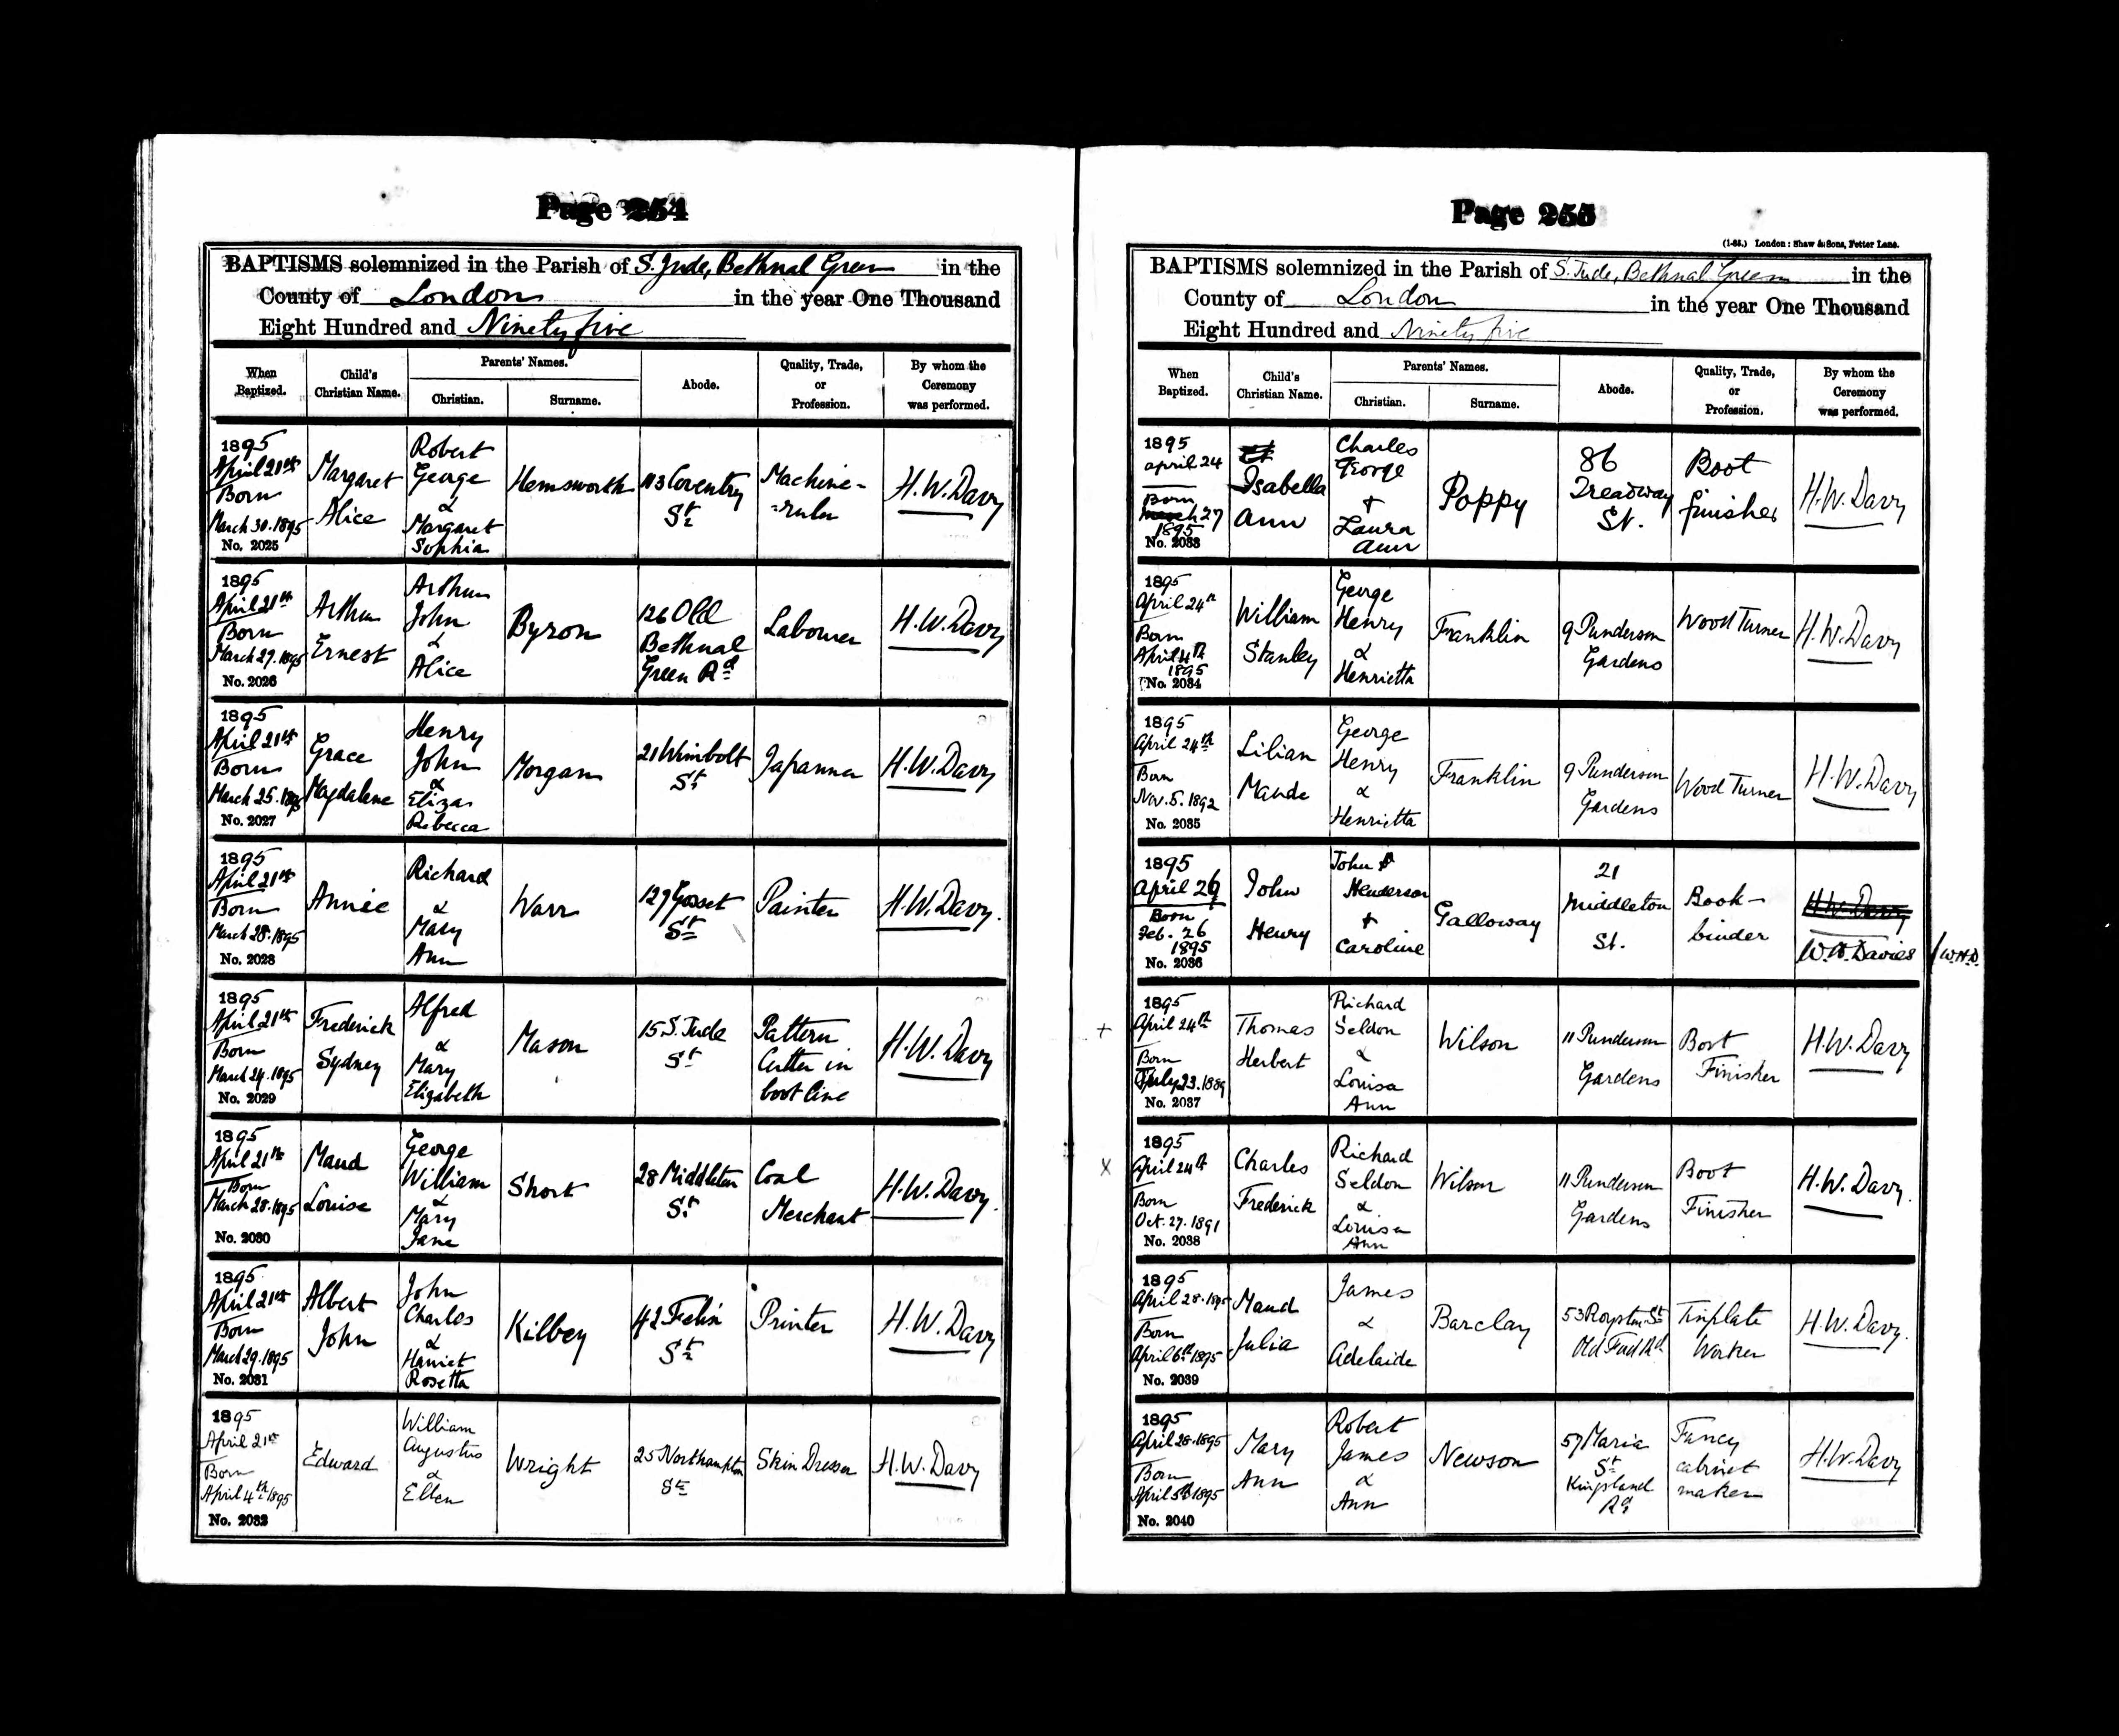 Page 254
BAPTISMS solemnized in the Parish of S. Jude, Bethnal Green in the
County of London in the year One Thousand
Eight Hundred and Ninety five
When Baptized.
Child's Christian Name.
Parents' Names.
Christian.
Surname.
Abode.
Quality, Trade, or Profession.
By whom the Ceremony was performed.
1895
April 21st
Born
March 30. 1895
No. 2025
Margaret
Alice
Robert
George
&
Margaret
Sophia
Hemsworth
113 Coventry
St.
Machine-
-ruler
H.W. Davy
1895
April 21st
Born
March 29. 1895
No. 2026
Arthur
Ernest
Arthur
John
&
Alice
Byron
126 Old
Bethnal
Green Rd
Labourer
H.W. Davy
1895
April 21st
Born
March 25. 1895
No. 2027
Grace
Magdalene
Henry
John
&
Eliza
Rebecca
Morgan
21 Wimbolt
St.
Japanner
H.W. Davy
1895
April 21st
Born
March 28. 1895
No. 2028
Annie
Richard
&
Mary
Ann
Warr
127 Gosset
St
Painter
H.W. Davy.
1895
April 21st
Born
March 24. 1895
No. 2029
Frederick
Sydney
Alfred
&
Mary
Elizabeth
Mason
15 S. Jude
St
Pattern
Cutter in
boot line
H.W. Davy
1895
April 21st
Born
March 28. 1895
No. 2030
Maud
Louise
George
William
&
Mary
Jane
Short
28 Middleton
St.
Coal
Merchant
H.W. Davy.
1895
April 21st
Born
March 29. 1895
No. 2031
Albert
John
John
Charles
&
Harriet
Rosetta
Kilbey
42 Felix
St.
Printer
H.W. Davy
1895
April 21st
Born
April 4th 1895
No. 2032
Edward
William
Augustus
&
Ellen
Wright
25 Northampton
St
Skin Dresser
H.W. Davy
Page 255
(1-85.) London: Shaw & Sons, Fetter Lane.
BAPTISMS solemnized in the Parish of S. Jude, Bethnal Green in the
County of London in the year One Thousand
Eight Hundred and Ninety five
When Baptized.
Child's Christian Name.
Parents' Names.
Christian.
Surname.
Abode.
Quality, Trade, or Profession.
By whom the Ceremony was performed.
1895
April 24
Born
March 27
1895
No. 2033
Isabella
Ann
Charles
George
+
Laura
Ann
Poppy
86
Treadway
St.
Boot
finisher
H.W. Davy
1895
April 24th
Born
April 4th
1895
No. 2034
William
Stanley
George
Henry
&
Henrietta
Franklin
9 Punderson
Gardens
Wood Turner
H.W. Davy
1895
April 24th
Born
Nov. 5. 1892
No. 2035
Lilian
Maude
George
Henry
&
Henrietta
Franklin
9 Punderson
Gardens
Wood Turner
H.W. Davy
1895
April 26
Born
Feb. 26
1895
No. 2036
John
Henry
John
Henderson
+
Caroline
Galloway
21
Middleton
St.
Book-
binder
H.W. Davy
W.H. Davies
W.H.D.
+
1895
April 24th
Born
July 23. 1889
No. 2037
Thomas
Herbert
Richard
Seldon
&
Louisa
Ann
Wilson
11 Punderson
Gardens
Boot
Finisher
H.W. Davy
x
1895
April 24th
Born
Oct. 27. 1891
No. 2038
Charles
Frederick
Richard
Seldon
&
Louisa
Ann
Wilson
11 Punderson
Gardens
Boot
Finisher
H.W. Davy.
1895
April 28. 1895
Born
April 6th 1895
No. 2039
Maud
Julia
James
&
Adelaide
Barclay
53 Royston St
Old Ford Rd
Tinplate
Worker
H.W. Davy.
1895
April 28. 1895
Born
April 5th 1895
No. 2040
Mary
Ann
Robert
James
&
Ann
Newson
57 Maria
St
Kingsland
Rd
Fancy
cabinet
maker
H.W. Davy